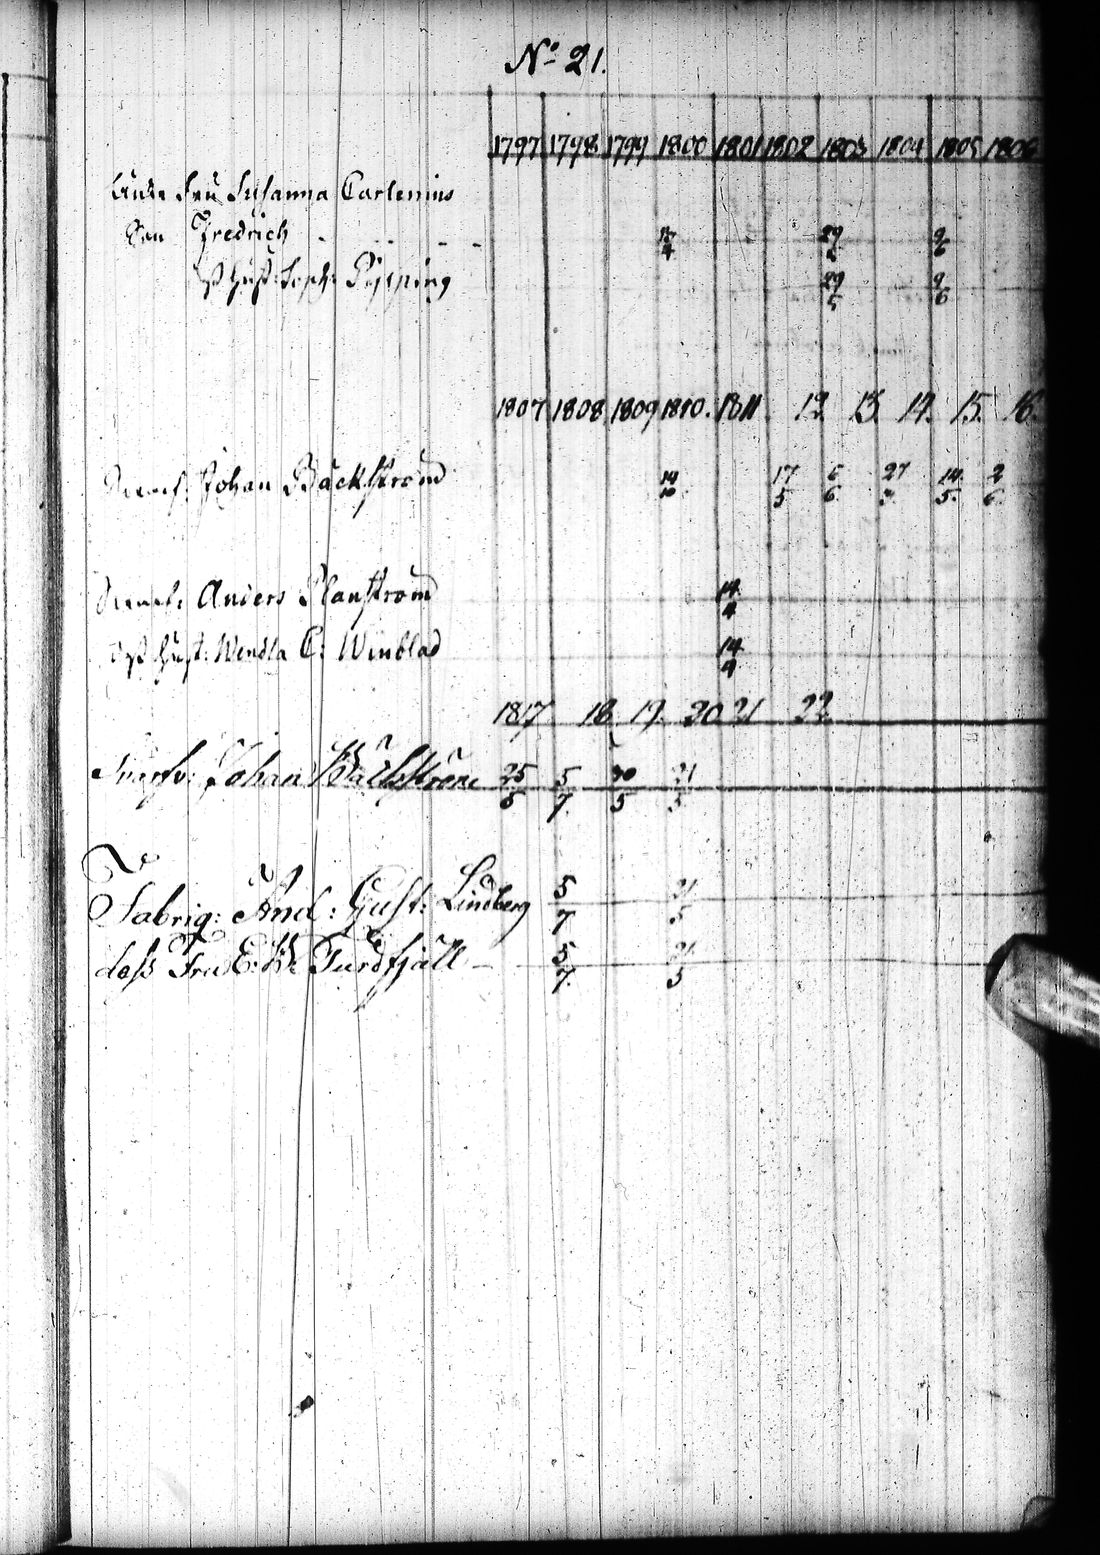 No 21.
1797 1798 1799 1800 1801 1802 1803 1804 1805 1806
Enke Fru Susanna Carlenius
Son Fredrich 29 9 6
Hust: Soph: Pipping 29 5 9 6
1807 1808 1809 1810. 1811 12. 13. 14. 15. 16.
Johan Bäckström 14 10 17 5 6 6 27 14 5. 2 6.
Anders Planström 14 4
Hust: Wendla C: Winblad 14 4
1817 18 19. 20 21 22
Johan Bäckström 25 5 5 7. 30 5 21 5
Fabriq: And: Gust: Lindberg 5 7 21 5
dess Fru E: Turdfjäll 5 7. 21 5